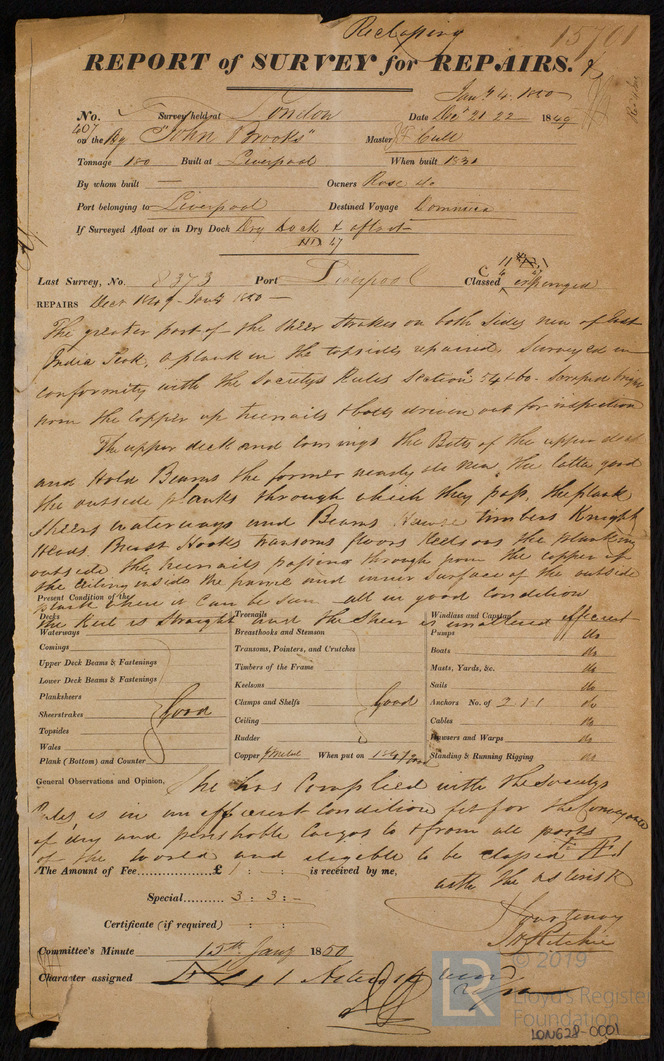 Reclassing
15701
REPORT of SURVEY for REPAIRS.
Jany 4. 1850
No. 407 Survey held at London Date Decr 21 22 1849
on the Bg "John Brooks" Master Cull
Tonnage 180 Built at Liverpool When built 1830
By whom built — Owners Rose & Co
Port belonging to Liverpool Destined Voyage Dominica
If Surveyed Afloat or in Dry Dock Dry Dock & afloat
Last Survey, No. 8373 Port Liverpool Classed expunged
REPAIRS Decr 1849 - Jany 1850 —
The greater part of the sheer strakes on both sides new of East
India Teak, a plank in the topsides repaired, Surveyed in
conformity with the Societys Rules Section 54 & 60 - Scraped bright
from the copper up treenails & bolts driven out for inspection
The upper deck and comings the Bolts of the upper deck
and Hold Beams the former nearly all new the latter good
the outside planks through which they pass, the plank
sheers waterways and Beams Hawse timbers Knight
Heads Breast Hooks transoms floors Keelsons the planking
outside the treenails passing through from the copper up
the ceiling inside the frame and inner surface of the outside
plank where it can be seen all in good condition
the Keel is straight and the Sheer is unaltered
Present Condition of the
Decks
Waterways
Comings
Upper Deck Beams & Fastenings
Lower Deck Beams & Fastenings
Planksheers
Sheerstrakes
Topsides
Wales
Plank (Bottom) and Counter
Good
Treenails
Breasthooks and Stemson
Transoms, Pointers, and Crutches
Timbers of the Frame
Keelsons
Clamps and Shelfs
Ceiling
Rudder
Good
Copper Metal When put on 1849 Good
Windlass and Capstan efficient
Pumps do
Boats do
Masts, Yards, &c. do
Sails do
Anchors No. of 2 1 1 do
Cables do
Hawsers and Warps do
Standing & Running Rigging do
General Observations and Opinion, She has complied with the Societys
Rules is in an efficient condition fit for the Conveyance
of dry and perishable Cargos to & from all parts
of the World and eligible to be classed Æ 1
with the asterisk
The Amount of Fee £ 1 : - : is received by me,
Special 3 : 3 : -
Certificate (if required) : :
Courtenay
J H Ritchie
Committee's Minute 15th Jany 1850
Character assigned Æ 1
© 2019
LR
Lloyd's Register
Foundation
LON628-0001